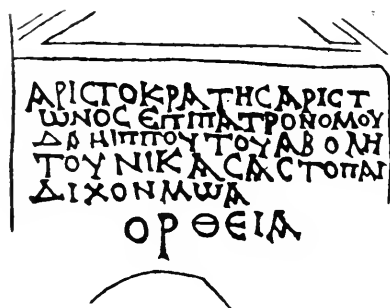 ΑΡΙϹΤΟΚΡΑΤΗϹΑΡΙϹΤ
ΩΝΟϹΕΠΙΠΑΤΡΟΝΟΜΟΥ
ΔΑΗΙΠΠΟΥΤΟΥΑΒΟΛΗ
ΤΟΥΝΙΚΑϹΑϹΤΟΠΑΙ
ΔΙΧΟΝΜΩΑ
ΟΡΘΕΙΑ